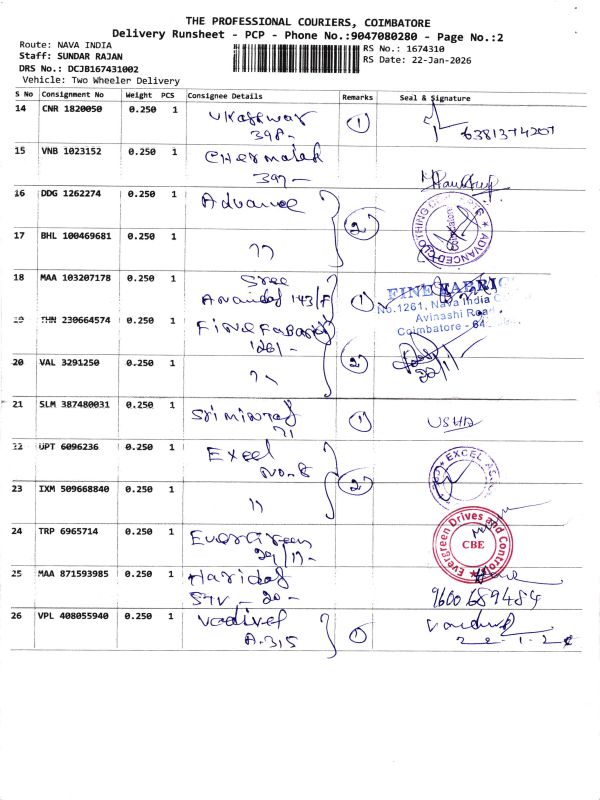 THE PROFESSIONAL COURIERS, COIMBATORE
Delivery Runsheet - PCP - Phone No.:9047080280 - Page No.:2
Route: NAVA INDIA
Staff: SUNDAR RAJAN
DRS No.: DCJB167431002
Vehicle: Two Wheeler Delivery
RS No.: 1674310
RS Date: 22-Jan-2026
S No Consignment No Weight PCS Consignee Details Remarks Seal & Signature
14 CNR 1820050 0.250 1 398- 1
15 VNB 1023152 0.250 1 397-
16 DDG 1262274 0.250 1 Advance 2
ADVANCED CLOTHING Coimbatore
17 BHL 100469681 0.250 1 ''
18 MAA 103207178 0.250 1 Sree
Anandas 143/F 1
FINE FABRIC
No.1261, Nava India
Avinashi Road
Coimbatore - 64
19 THN 230664574 0.250 1
1261- 2
20 VAL 3291250 0.250 1 ''
22/1
21 SLM 387480031 0.250 1 71 1 USHA
22 UPT 6096236 0.250 1 Excel
No-8 2
EXCEL
23 IXM 509668840 0.250 1 ''
24 TRP 6965714 0.250 1 Evergreen
Evergreen Drives and Control
CBE
25 MAA 871593985 0.250 1 Haridas
STV - 20 -
9600689484
26 VPL 408055940 0.250 1 Vadivel
A.315 1